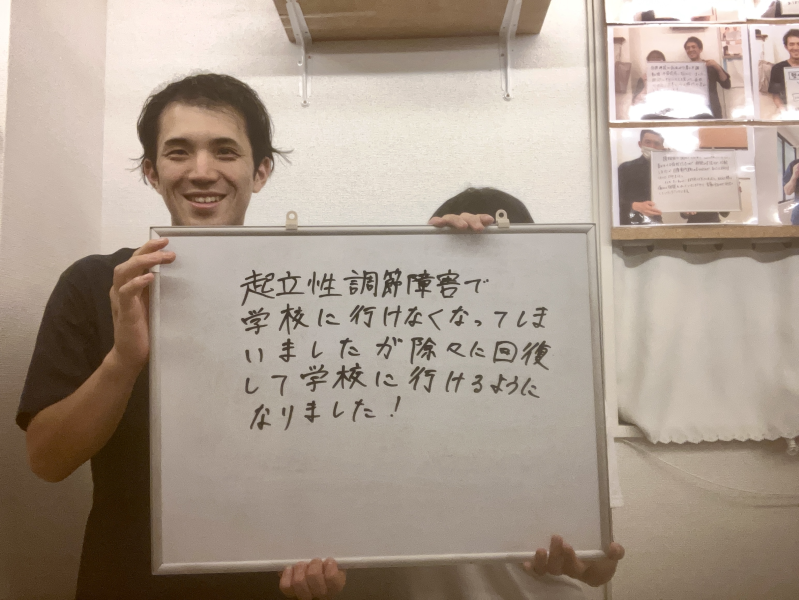 起立性調節障害で
学校に行けなくなってしま
いましたが除々に回復
して学校に行けるように
なりました!